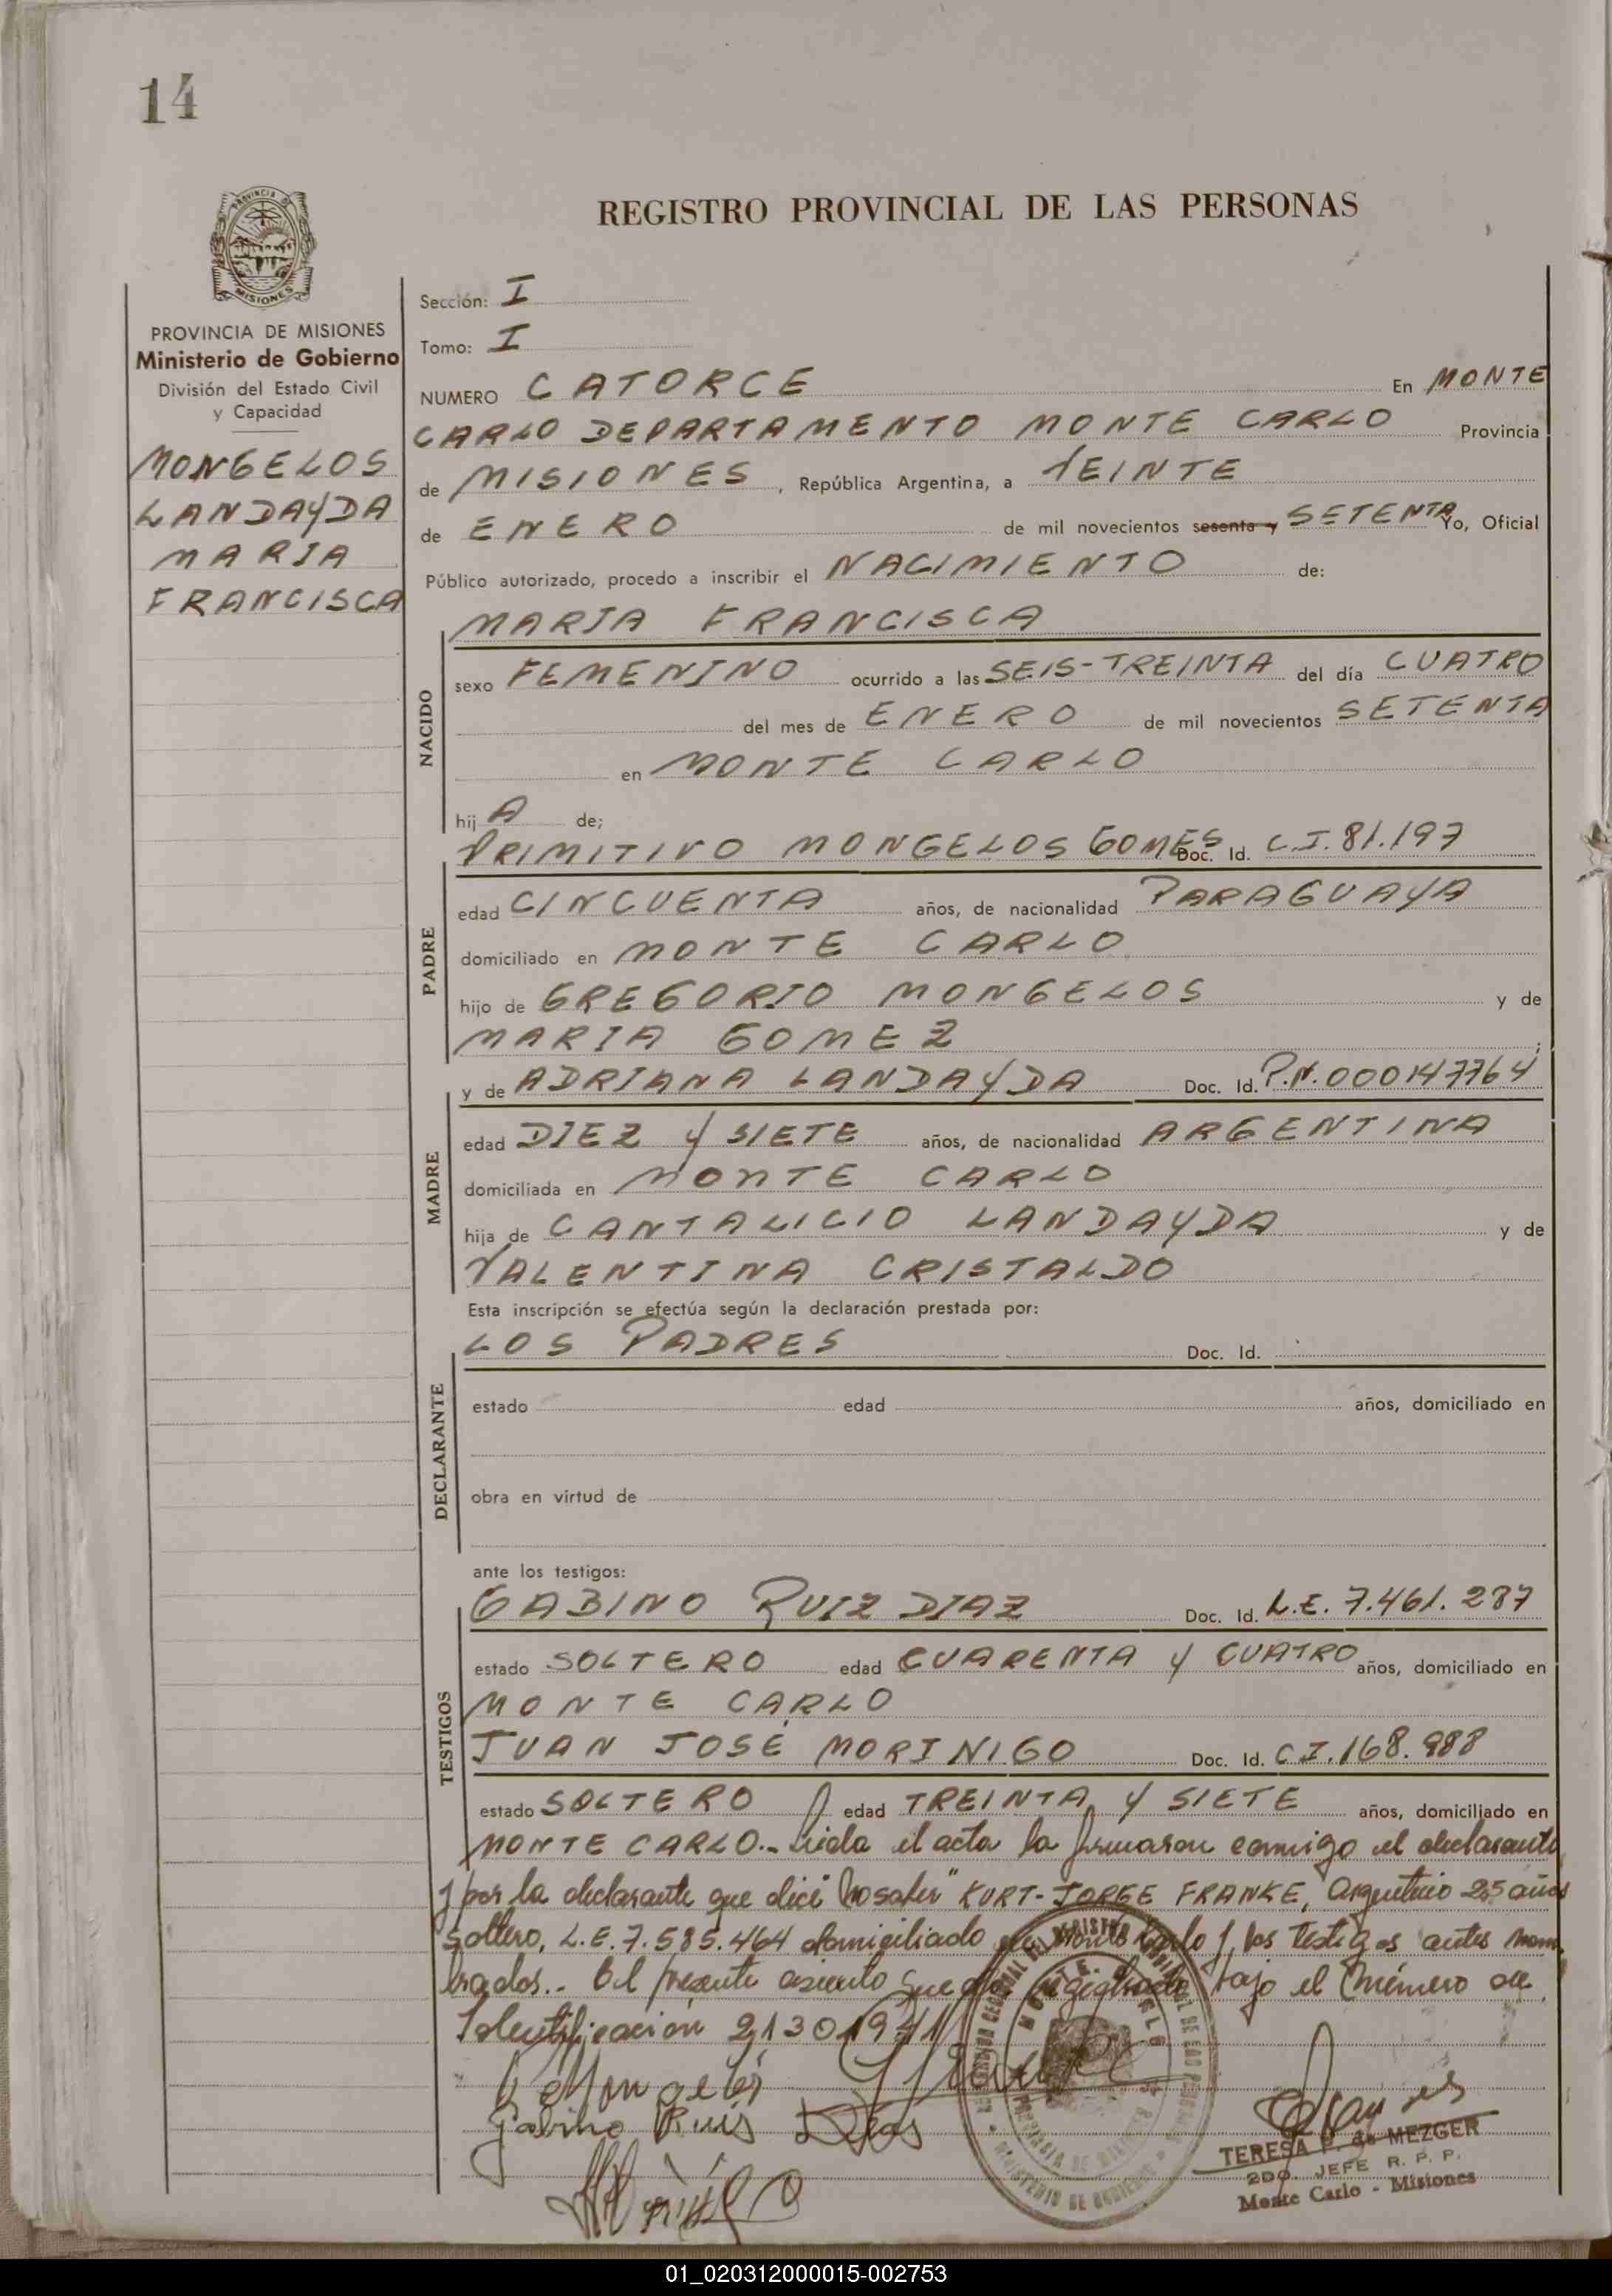 14
REGISTRO PROVINCIAL DE LAS PERSONAS
PROVINCIA DE
MISIONES
PROVINCIA DE MISIONES
Ministerio de Gobierno
División del Estado Civil
y Capacidad
MONGELOS
LANDAYDA
MARIA
FRANCISCA
Sección: I
Tomo: I
NUMERO CATORCE En MONTE
CARLO DEPARTAMENTO MONTE CARLO Provincia
de MISIONES, República Argentina, a VEINTE
de ENERO de mil novecientos sesenta y SETENTA Yo, Oficial
Público autorizado, procedo a inscribir el NACIMIENTO de:
NACIDO
MARIA FRANCISCA
sexo FEMENINO ocurrido a las SEIS-TREINTA del día CUATRO
del mes de ENERO de mil novecientos SETENTA
en MONTE CARLO
hij A de;
PADRE
PRIMITIVO MONGELOS GOMES Doc. Id. C.I. 81.197
edad CINCUENTA años, de nacionalidad PARAGUAYA
domiciliado en MONTE CARLO
hijo de GREGORIO MONGELOS y de
MARIA GOMEZ ;
MADRE
y de ADRIANA LANDAYDA Doc. Id. P.N. 000147764
edad DIEZ y SIETE años, de nacionalidad ARGENTINA
domiciliada en MONTE CARLO
hija de CANTALICIO LANDAYDA y de
VALENTINA CRISTALDO
Esta inscripción se efectúa según la declaración prestada por:
DECLARANTE
LOS PADRES Doc. Id.
estado edad años, domiciliado en
obra en virtud de
ante los testigos:
TESTIGOS
GABINO RUIZ DIAZ Doc. Id. L.E. 7.461.287
estado SOLTERO edad CUARENTA y CUATRO años, domiciliado en
MONTE CARLO
JUAN JOSÉ MORINIGO Doc. Id. C.I. 168.988
estado SOLTERO edad TREINTA y SIETE años, domiciliado en
MONTE CARLO.- Leida el acta la firmaron conmigo el declarante
y por la declarante que dice "no saber" KURT-JORGE FRANKE, Argentino 25 años
soltero, L.E. 7.585.464 domiciliado en Monte Carlo y los testigos antes nom
brados.- El presente asiento queda registrado bajo el Número de
Identificación 21301941
Gabino Ruis Dias
TERESA P. de MEZGER
2DO. JEFE R. P. P.
Monte Carlo - Misiones
01_020312000015-002753